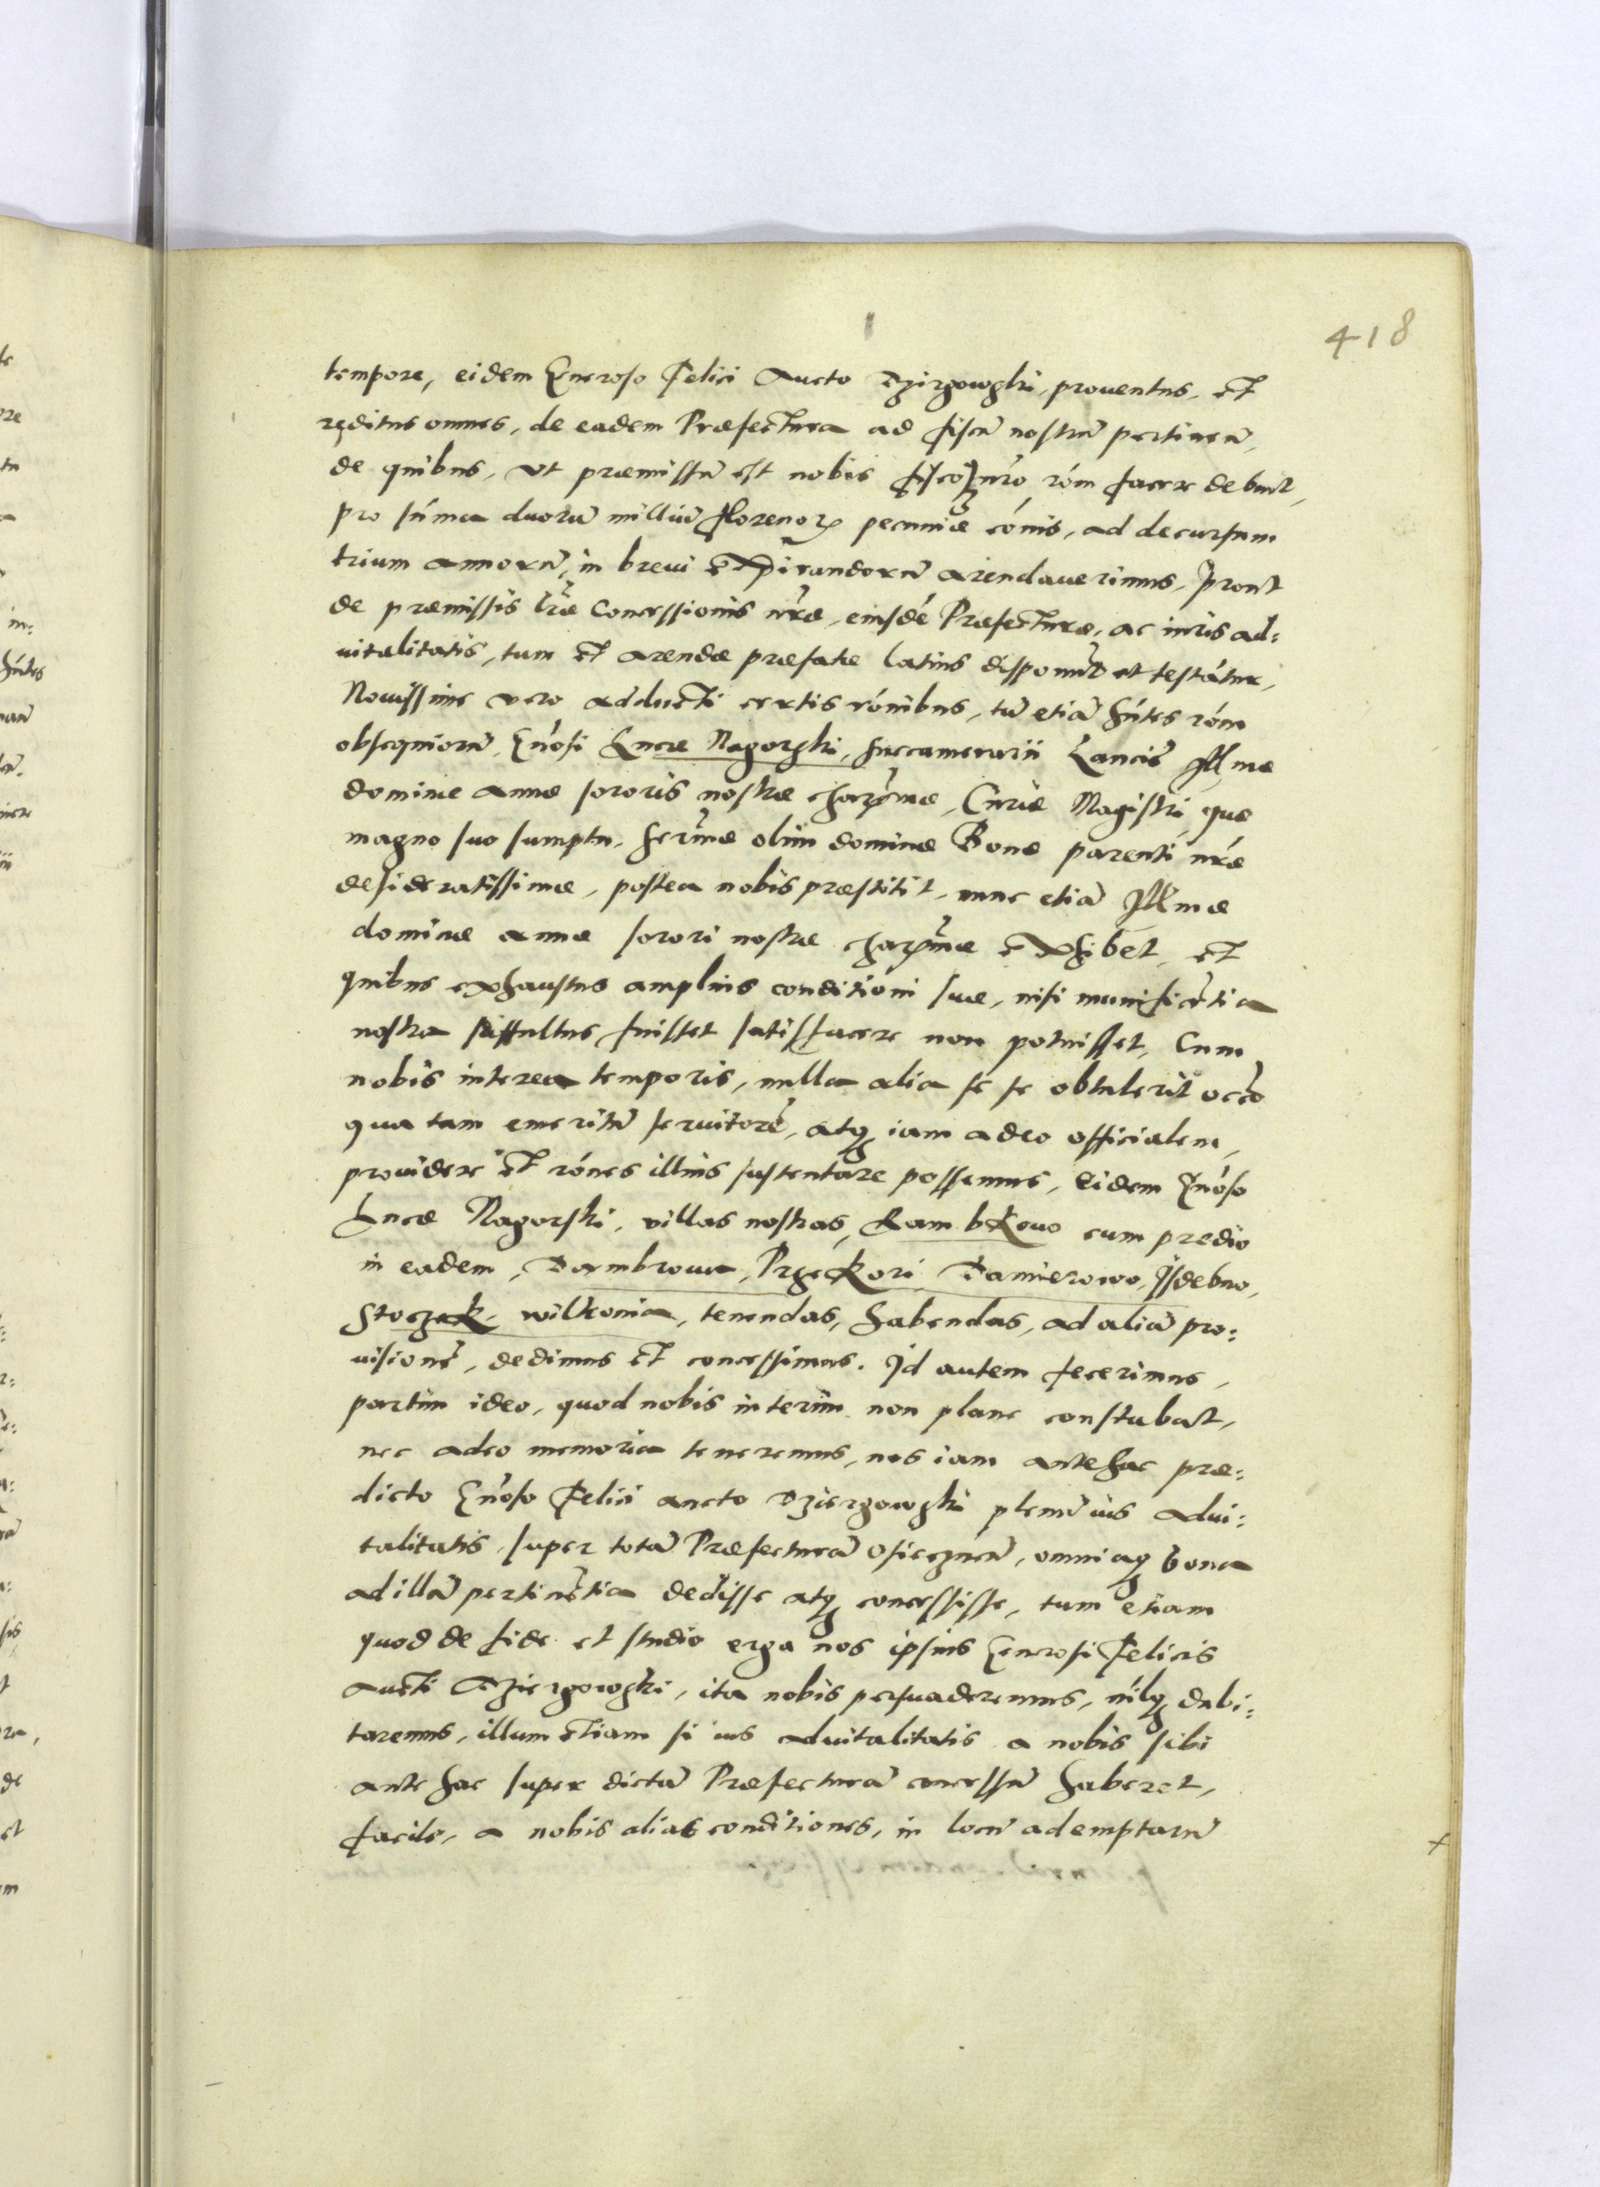 418
tempore, eidem Gneroso Felici Aucto Dzirgowski, proventus, et
reditus omnes, de eadem Præfectura ad fiscũ nostrũ pertinen̄,
de quibus, ut præmissũ est nobis fisco nrõ rõm facere debuit,
pro sũma duorũ milliũ florenoꝝ pecuniæ cõnis, ad decursum
trium annorũ, in brevi expirandorũ arendaverimus, prout
de præmissis lrẽ concessionis nrẽ, eiusdẽ Præfecturæ, ac iuris ad=
vitalitatis, tum et arendæ præfatæ latius disponũt et testãtur,
Novissime vero adducti certis rõnibus, tũ etiã hñtes rõm
obsequiorũ, Gñosi Lucæ Nagorski, succamerarii Lancis̃ Illmæ
dominæ Annæ sororis nostræ charismæ, Curiæ Magistri, quæ
magno suo sumptu, serm̃æ olim dominæ Bonæ parenti nrẽ
desideratissimæ, postea nobis præstitit, nunc etiã Illmæ
dominæ Annæ sorori nostræ charism̃æ exhibet, et
quibus exhaustus amplius conditioni suæ, nisi munificẽtia
nostra suffultus fuisset satisfacere non potuisset, Cum
nobis interea temporis, nulla alia se se obtulerit occõ
qua tam emeritũ servitorẽ, atqꝫ iam adeo officialem,
providere et rõnes illius sustentare possemus, eidem Gñoso
Lucæ Nagorski, villas nostras, Rambkowo cum predio
in eadem, Dambrowa, Przeckori, Damierowo, Jsdebno,
Stoczek, wilkonia, tenendas, habendas, ad aliã pro=
visionẽ, dedimus et concessimus. Id autem fecerimus,
partim ideo, quod nobis interim non plane constabat,
nec adeo memoria teneremus, nos iam antehac præ=
dicto Gñoso Felici Aucto Dziergowski plenũ ius advi=
talitatis, super totã Præfecturã Osiecznen̄, omniaqꝫ bona
ad illã pertinẽtia dedisse atqꝫ concessisse, tum etiam
quod de fide et studio erga nos ipsius Generosi Felicis
Aucti Dziergowski, ita nobis persuaderemus, nilqꝫ dubi=
taremus, illum etiam si ius advitalitatis a nobis sibi
ante hac super dictã Præfecturã concessũ haberet,
facile, a nobis alias conditiones, in locũ ademptarũ